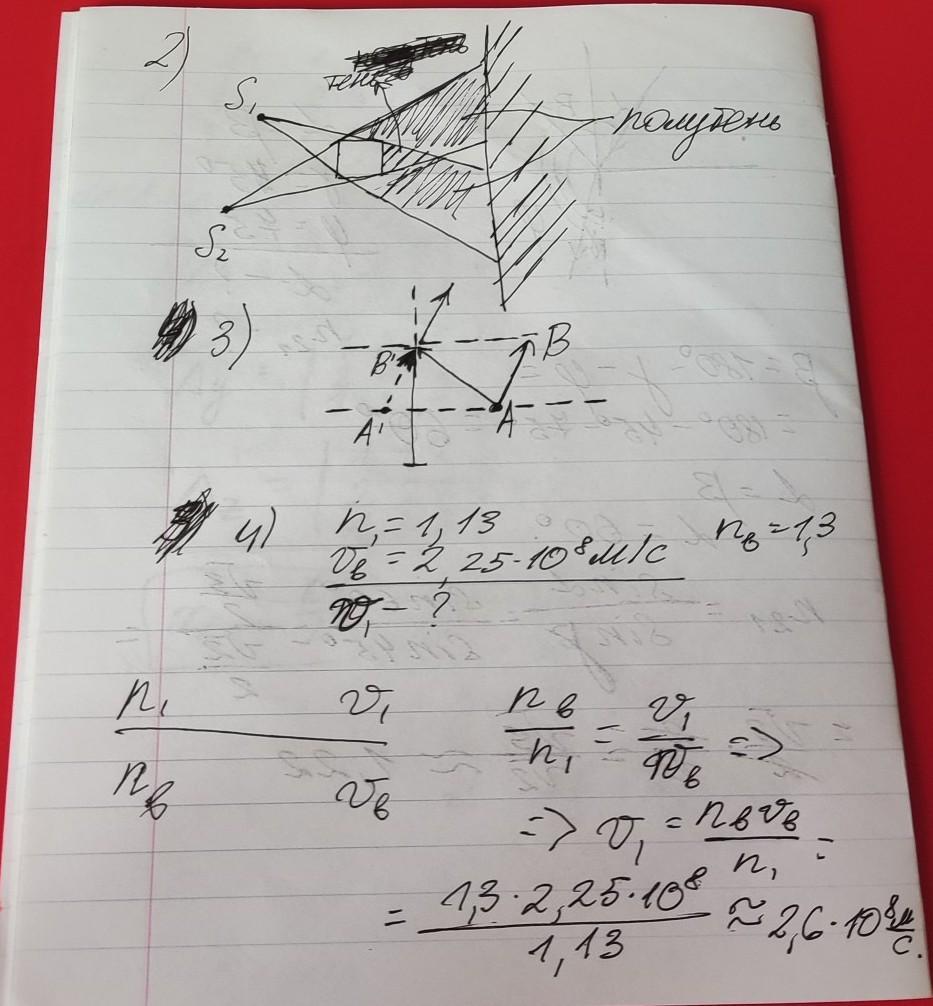 2)
тень
полутень
S₁
S₂
3)
B' B
A' A
4) n₁ = 1,13 nв = 1,3
vв = 2,25·10⁸ м/с
v₁ - ?
n₁ v₁
nв vв
nв/n₁ = v₁/vв =>
=> v₁ = nвvв/n₁ =
= 1,3·2,25·10⁸/1,13 ≈ 2,6·10⁸ м/с.